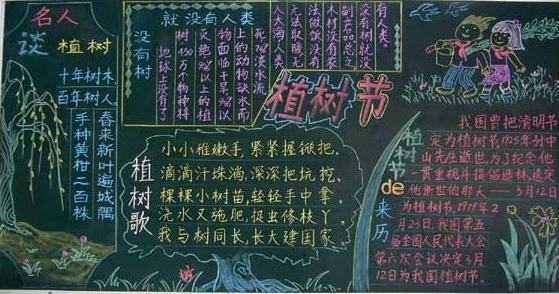 名人
谈 植树
十年树木,
百年树人。
春来新叶遍城隅
手种黄柑二百株
没有树
就没有人类
地球上没有了
树450万个物种将
灭绝 以上的植
物面临干旱 以
上的动物缺水而
死 淡水流
入大海人类
无法取暖无
法做饭没有
木材没有农
副产品总之
没有树就没
有人类。
植树节
植树歌
小小稚嫩手,紧紧握锨把.
滴滴汗珠淌,深深把坑挖.
棵棵小树苗,轻轻手中拿.
浇水又施肥,捉虫修枝丫.
我与树同长,长大建国家
植树节de来历
我国曾把清明节
定为植树节1925年孙中
山先生逝世,为了纪念他
一贯重视并提倡造林,规定
他逝世的那天——3月12日
为植树节,1979年2
月23日,我国第五
届全国人民代表大会
第六次会议决定3月
12日为我国植树节。